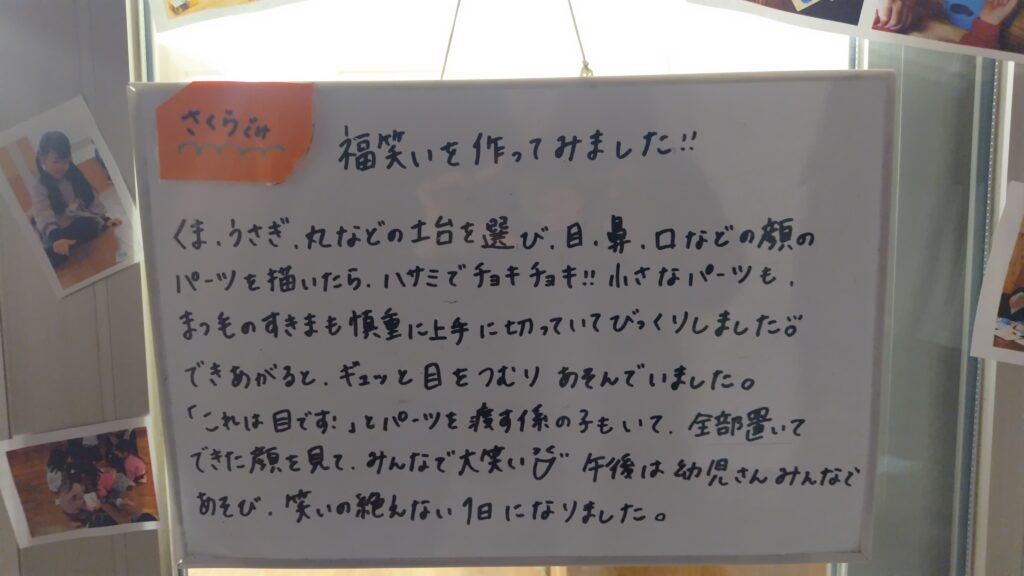 さくらぐみ
福笑いを作ってみました!!
くま、うさぎ、丸などの土台を選び、目、鼻、口などの顔の
パーツを描いたら、ハサミでチョキチョキ!! 小さなパーツも、
まつ毛のすきまも慎重に上手に切っていてびっくりしました。
できあがると、ギュッと目をつむり あそんでいました。
「これは目です!」とパーツを渡す係の子もいて、全部置いて
できた顔を見て、みんなで大笑い 午後は幼児さんみんなで
あそび、笑いの絶えない1日になりました。